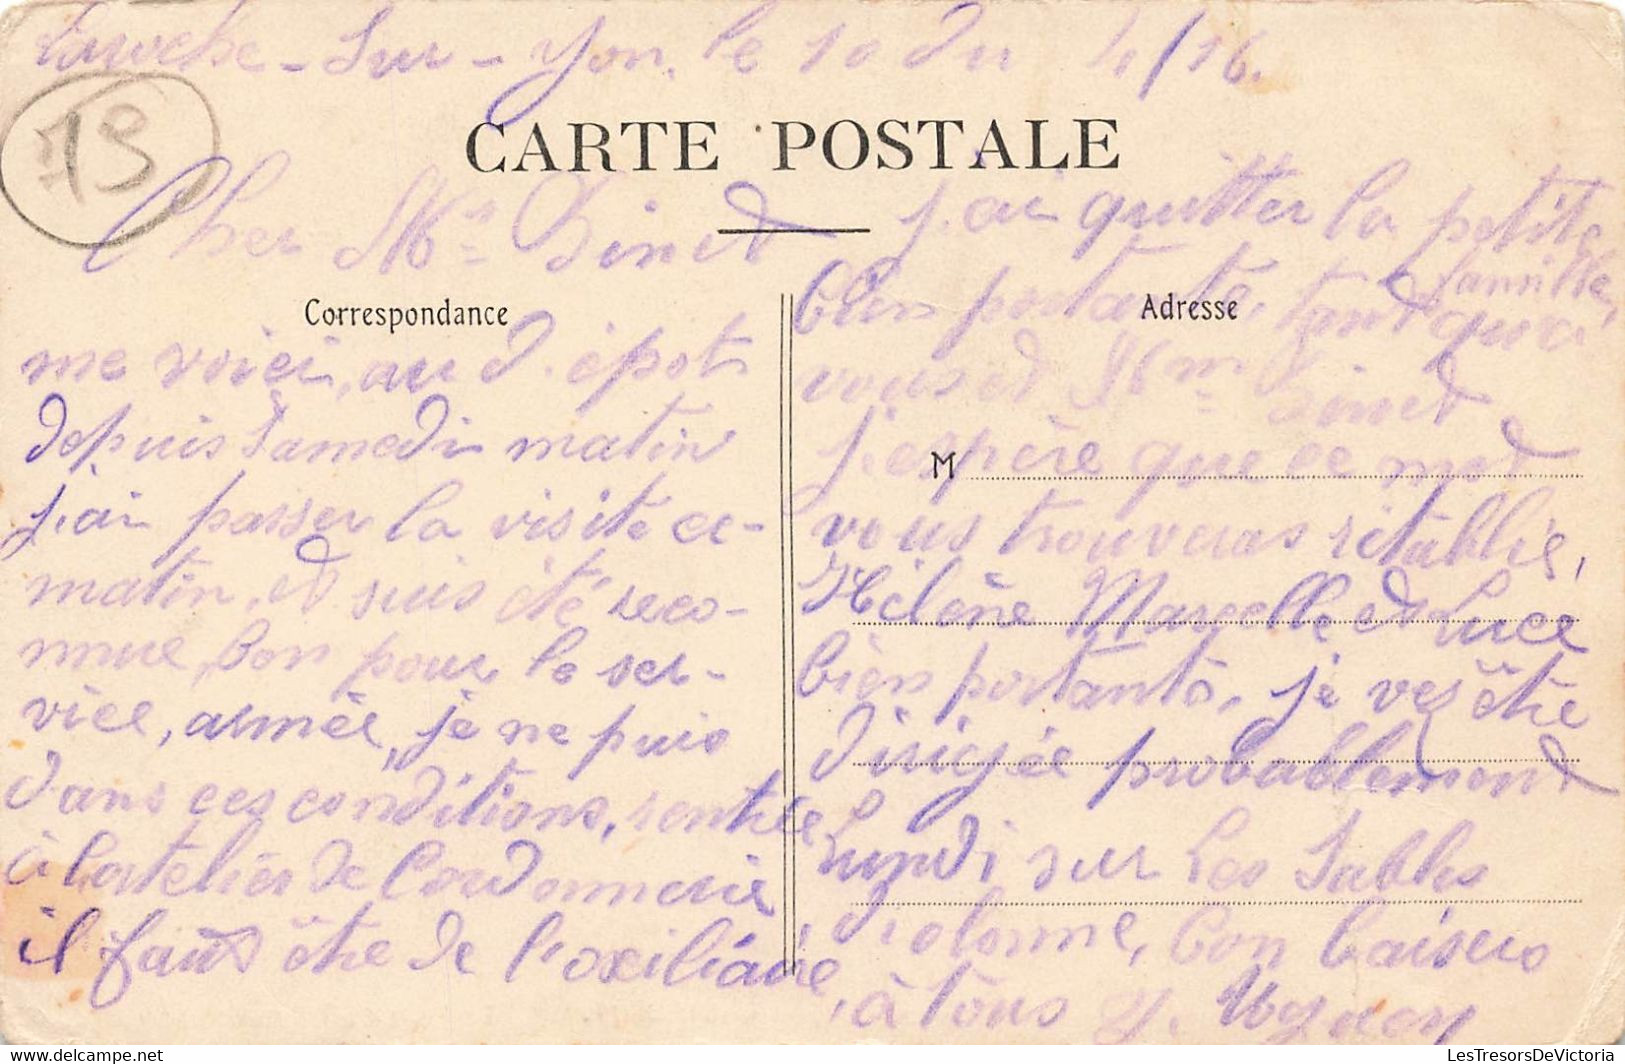 Laroche-Sur-Yon, le 10 du 4/16.
CARTE POSTALE
Cher Mr Binet
Correspondance
me voici, au d.épot
depuis Samedi matin
j.ai passer la visite ce-
matin, et suis été reco-
nnue, bon pour le ser-
vice, armée, je ne puis
dans ces conditions, rentrée
à l'atelier de Cordonnerie
il faut être de l'oxiliaire,
j.ai quitter la petite
famille,
bien portante, tant qu'a
Adresse
vous et Mm Binet
j.espère que ce mot
M
vous trouveras rétablie,
Hélène Marcelle et Luce
bien portants, je ves être
dirigée probablement
Lundi sur Les Sables
d.olonne, bon baisers
à tous
LesTresorsDeVictoria